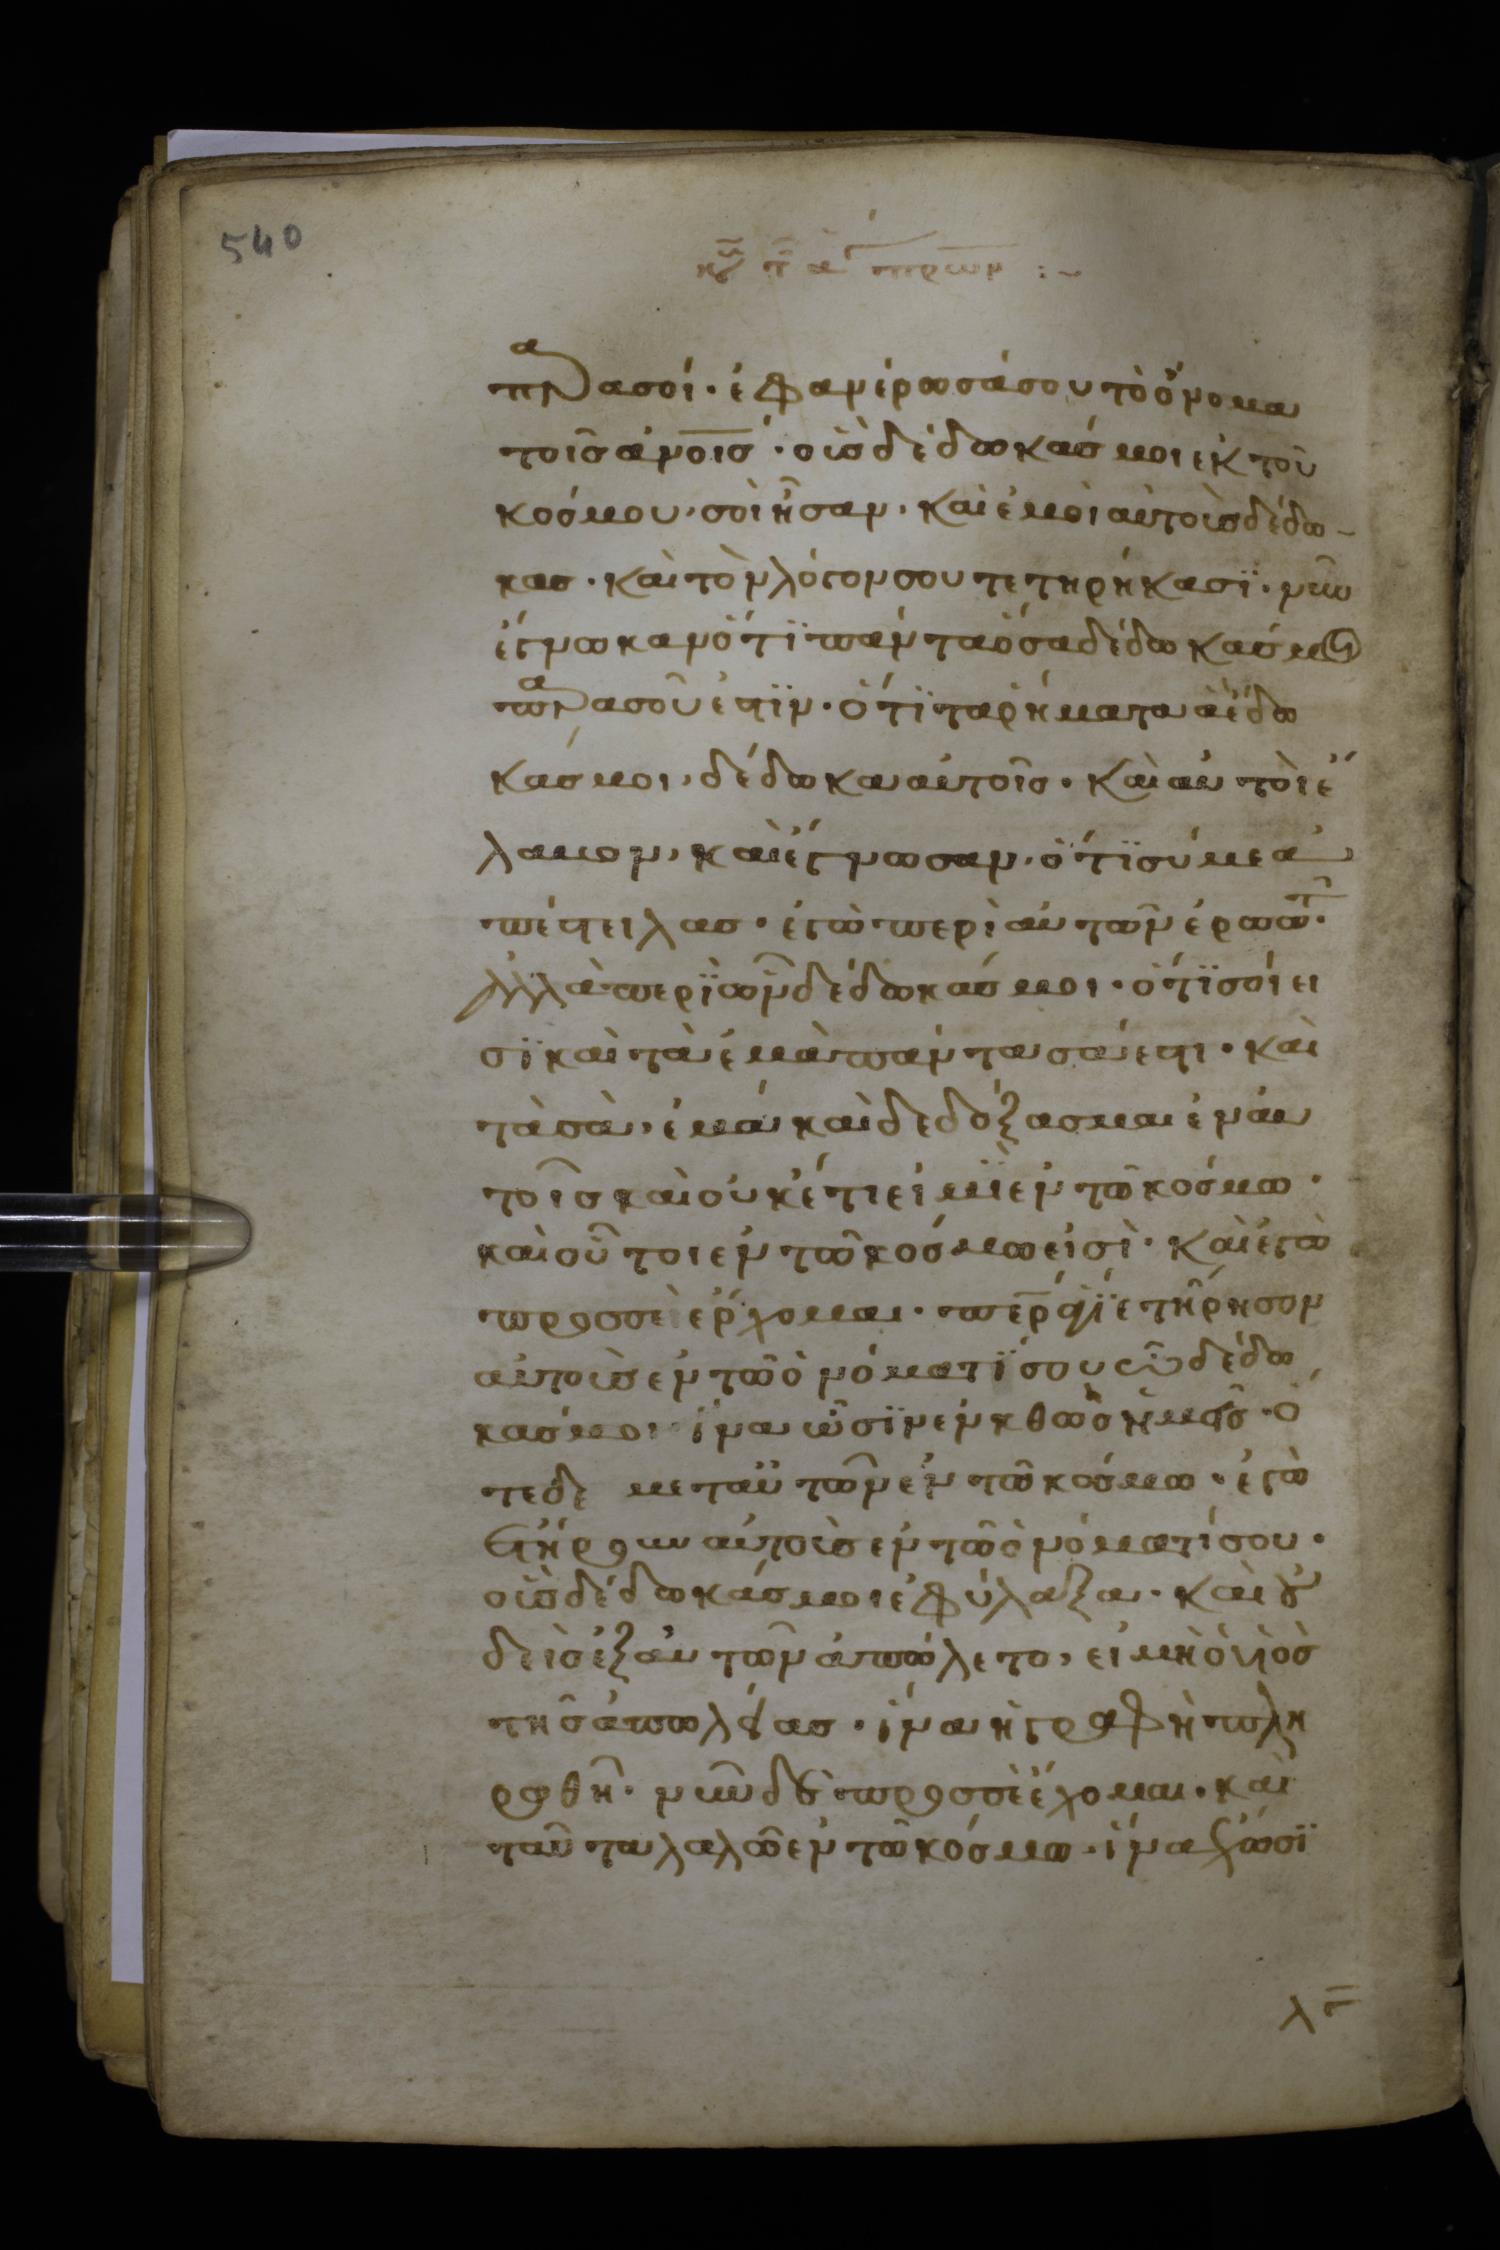 540
κυ τ α πρων :~
παρα σοί · ἐφανέρωσά σου τὸ ὄνομα
τοῖσ ἀνοισ · οὓσ δέδωκάσ μοι ἐκ τοῦ
κόσμου · σοὶ ἦσαν · καὶ ἐμοὶ αὐτοὺσ δέδω-
κασ · καὶ τὸν λόγον σου τετηρήκασϊ · νῦν
ἔγνωκαν ὅτϊ πάντα ὅσα δέδωκάσ μοι
παρα σοῦ ἐστϊν · ὅτϊ τα ρήματα ἃ ἔδω
κάσ μοι, δέδωκα αὐτοῖσ · καὶ αὐτοὶ ἔ
λαβον, καὶ ἔγνωσαν, ὅτϊ σύ με ἀ
πέστειλασ · ἐγὼ περὶ αὐτῶν ἐρωτῶ ·
ἀλλὰ περϊ ὧν δέδωκάσ μοι · ὅτϊ σοί ει
σϊ καὶ τὰ ἐμὰ πάντα σά ἐστι · καὶ
τὰ σὰ, ἐμά καὶ δεδόξασμαι ἐν αυ
τοῖσ καὶ οὐκέτι εἰμϊ ἐν τῶ κόσμω ·
καὶ οὗτοι ἐν τῶ κόσμω εἰσὶ · καὶ ἐγὼ
προσ σὲ ἔρχομαι · περ ἅγϊε τήρησον
αὐτοὺσ ἐν τῶ ὀνόματϊ σου ὧ δέδω
κάσ μοι ἵνα ὦσϊν ἓν κθὼσ ἡμεῖσ · ὅ
τε δὲ μετ αὐτῶν ἐν τῶ κόσμω · ἐγὼ
ἐτήρουν αὐτοὺσ ἐν τῶ ὀνόματί σου ·
οὓσ δέδωκάσ μοι ἐφύλαξα · καὶ οὐ
δεὶσ ἐξ αὐτῶν ἀπώλετο, εἰ μὴ ὁ υἱὸσ
τῆσ ἀπωλείασ · ἵνα ἡ γραφὴ πλη
ρωθῆ · νῦν δὲ προσ σὲ ἔχομαι · καὶ
ταῦτα λαλῶ ἐν τῶ κόσμω · ἵνα ἔχωσϊ